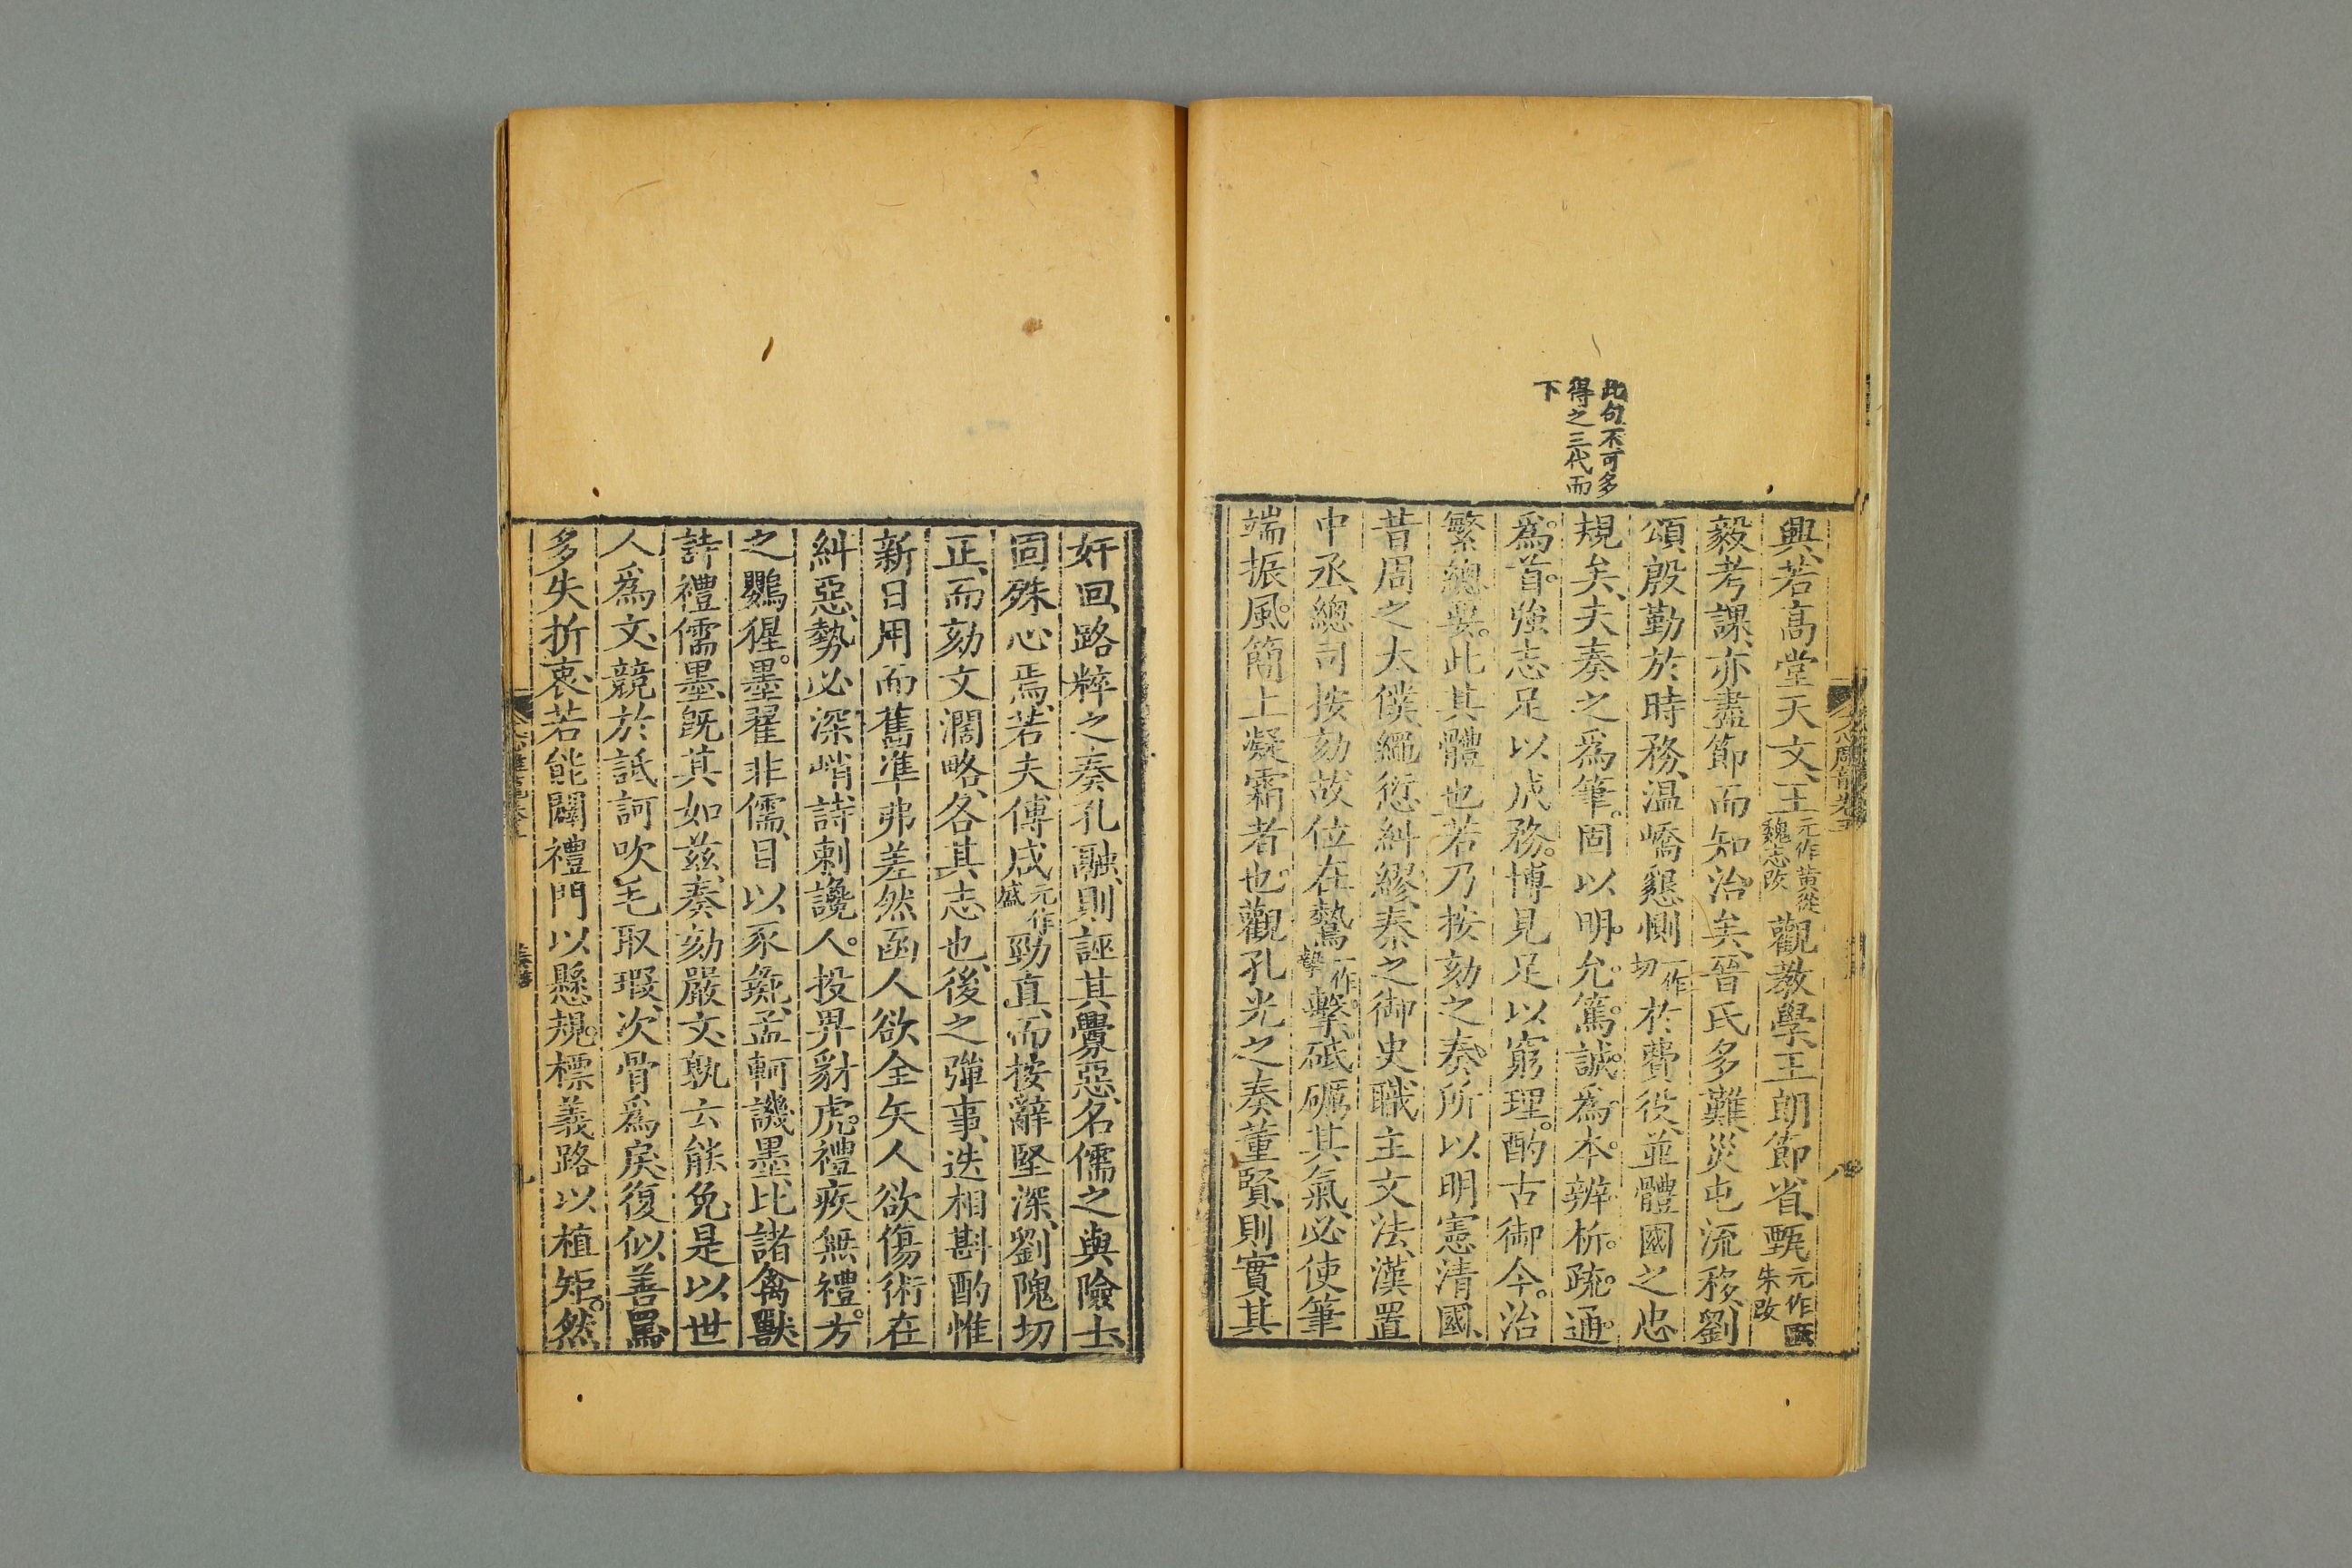 此句不可多
得之三代而
下
興、若高堂天文、王元作黃從魏志改觀教學、王朗節省、甄元作甌朱改
毅考課、亦盡節而知治矣、晉氏多難、災屯流移、劉
頌殷勤於時務、温嶠懇惻一作切於費役、並體國之忠
規矣、夫奏之爲筆。固以明。允。篤。誠。爲。本。辨。析。疏。通。
爲。首。強志足以成務。博見足以窮理。酌古御今。治
繁總要。此其體也、若乃按劾之奏、所以明憲清國、
昔周之太僕、繩愆糾繆、秦之御史、職主文法、漢置
中丞、總司按劾、故位在鷙一作摯擊、砥礪其氣、必使筆
端振風。簡上凝霜者也。觀孔光之奏董賢、則實其
奸回、路粹之奏孔融、則誣其舋惡、名儒之與險士、
固殊心焉、若夫傅咸元作感勁直、而按辭堅深、劉隗切
正、而劾文濶略、各其志也、後之彈事、迭相斟酌、惟
新日用、而舊準弗差、然函人欲全、矢人欲傷、術在
糾惡、勢必深峭、詩刺讒人。投畀豺虎。禮疾無禮。方
之鸚猩。墨翟非儒、目以豕彘、孟軻譏墨、比諸禽獸
詩禮儒墨、旣其如兹、奏劾嚴文、孰云能免、是以世
人爲文、競於詆訶、吹毛取瑕、次骨爲戾、復似善罵
多失折衷、若能闢禮門以懸規。標義路以植矩。然